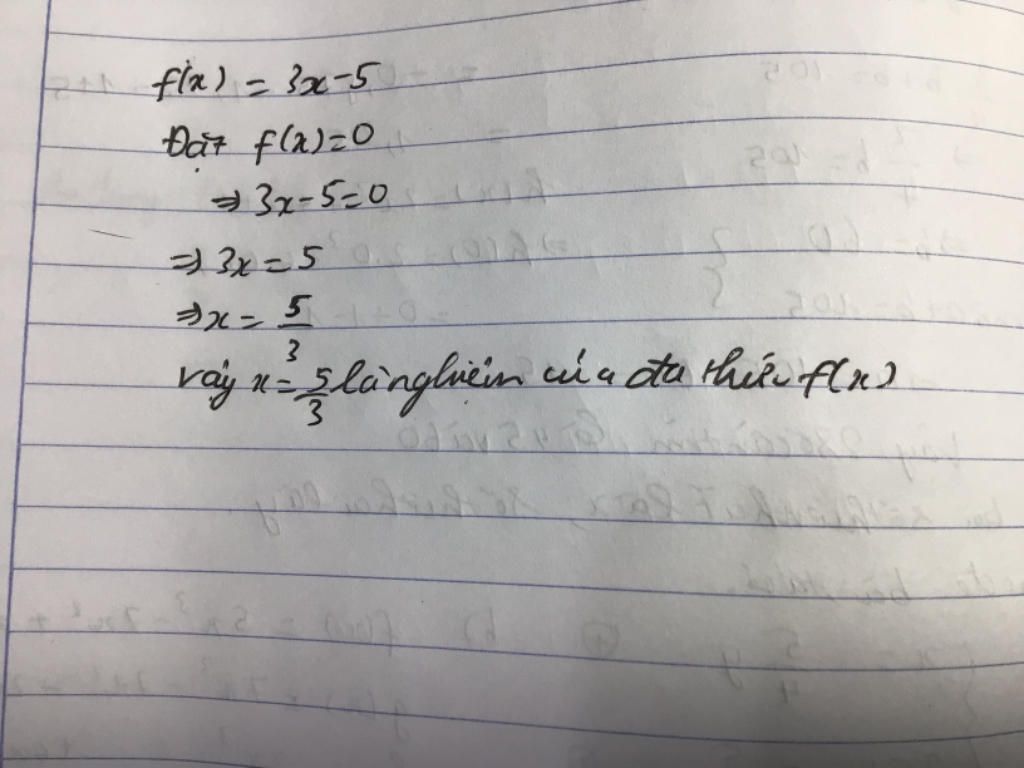 f(x) = 3x-5
Đặt f(x)=0
⇒ 3x-5=0
⇒ 3x = 5
⇒ x = 5/3
vậy x = 5/3 là nghiệm của đa thức f(x)